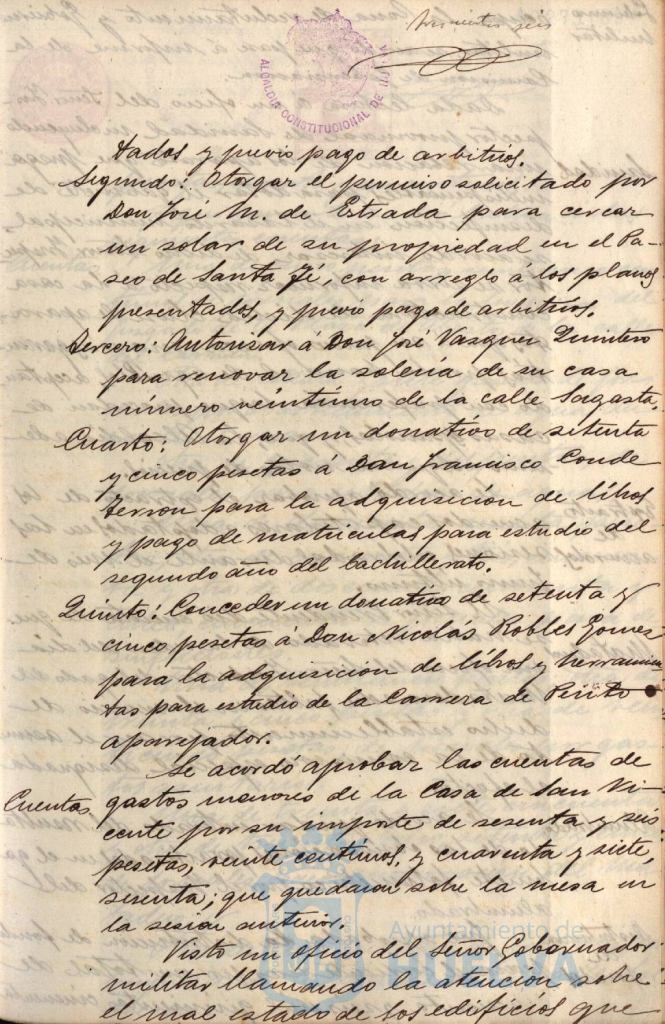 trescientos seis
ALCALDIA CONSTITUCIONAL DE
tados y previo pago de arbitrios.
Segundo: Otorgar el permiso solicitado por
Don José M. de Estrada para cercar
un solar de su propiedad en el Pa-
seo de Santa Fé, con arreglo á los planos
presentados, y previo pago de arbitrios.
Tercero: Autorizar á Don José Vasquez Quintero
para renovar la solería de su casa
número veintiuno de la calle Sagasta.
Cuarto: Otorgar un donativo de setenta
y cinco pesetas á Don Francisco Conde
Terron para la adquisición de libros
y pago de matriculas para estudio del
segundo año del bachillerato.
Quinto: Conceder un donativo de setenta y
cinco pesetas á Don Nicolás Robles Gomez
para la adquisición de libros y herramien
tas para estudio de la Carrera de Perito
aparejador.
Se acordó aprobar las cuentas de
Cuentas gastos menores de la Casa de San Vi-
cente por su importe de sesenta y seis
pesetas, veinte centimos, y cuarenta y siete,
sesenta; que quedaron sobre la mesa en
la sesion anterior.
Visto un oficio del Señor Gobernador
militar llamando la atención sobre
el mal estado de los edificios que
Ayuntamiento de
HUELVA